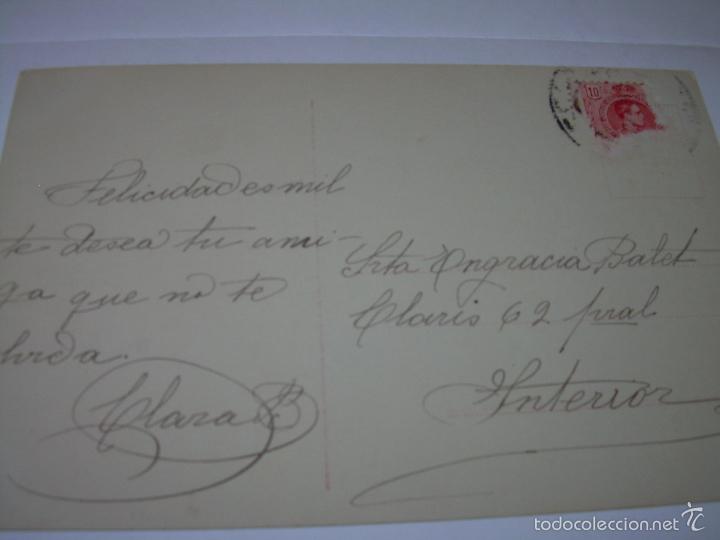 Felicidades mil
te desea tu ami-
ga que no te
olvida.
Clara B
10
Srta Engracia Batet
Claris 62 pral
Interior
todocoleccion.net
TC